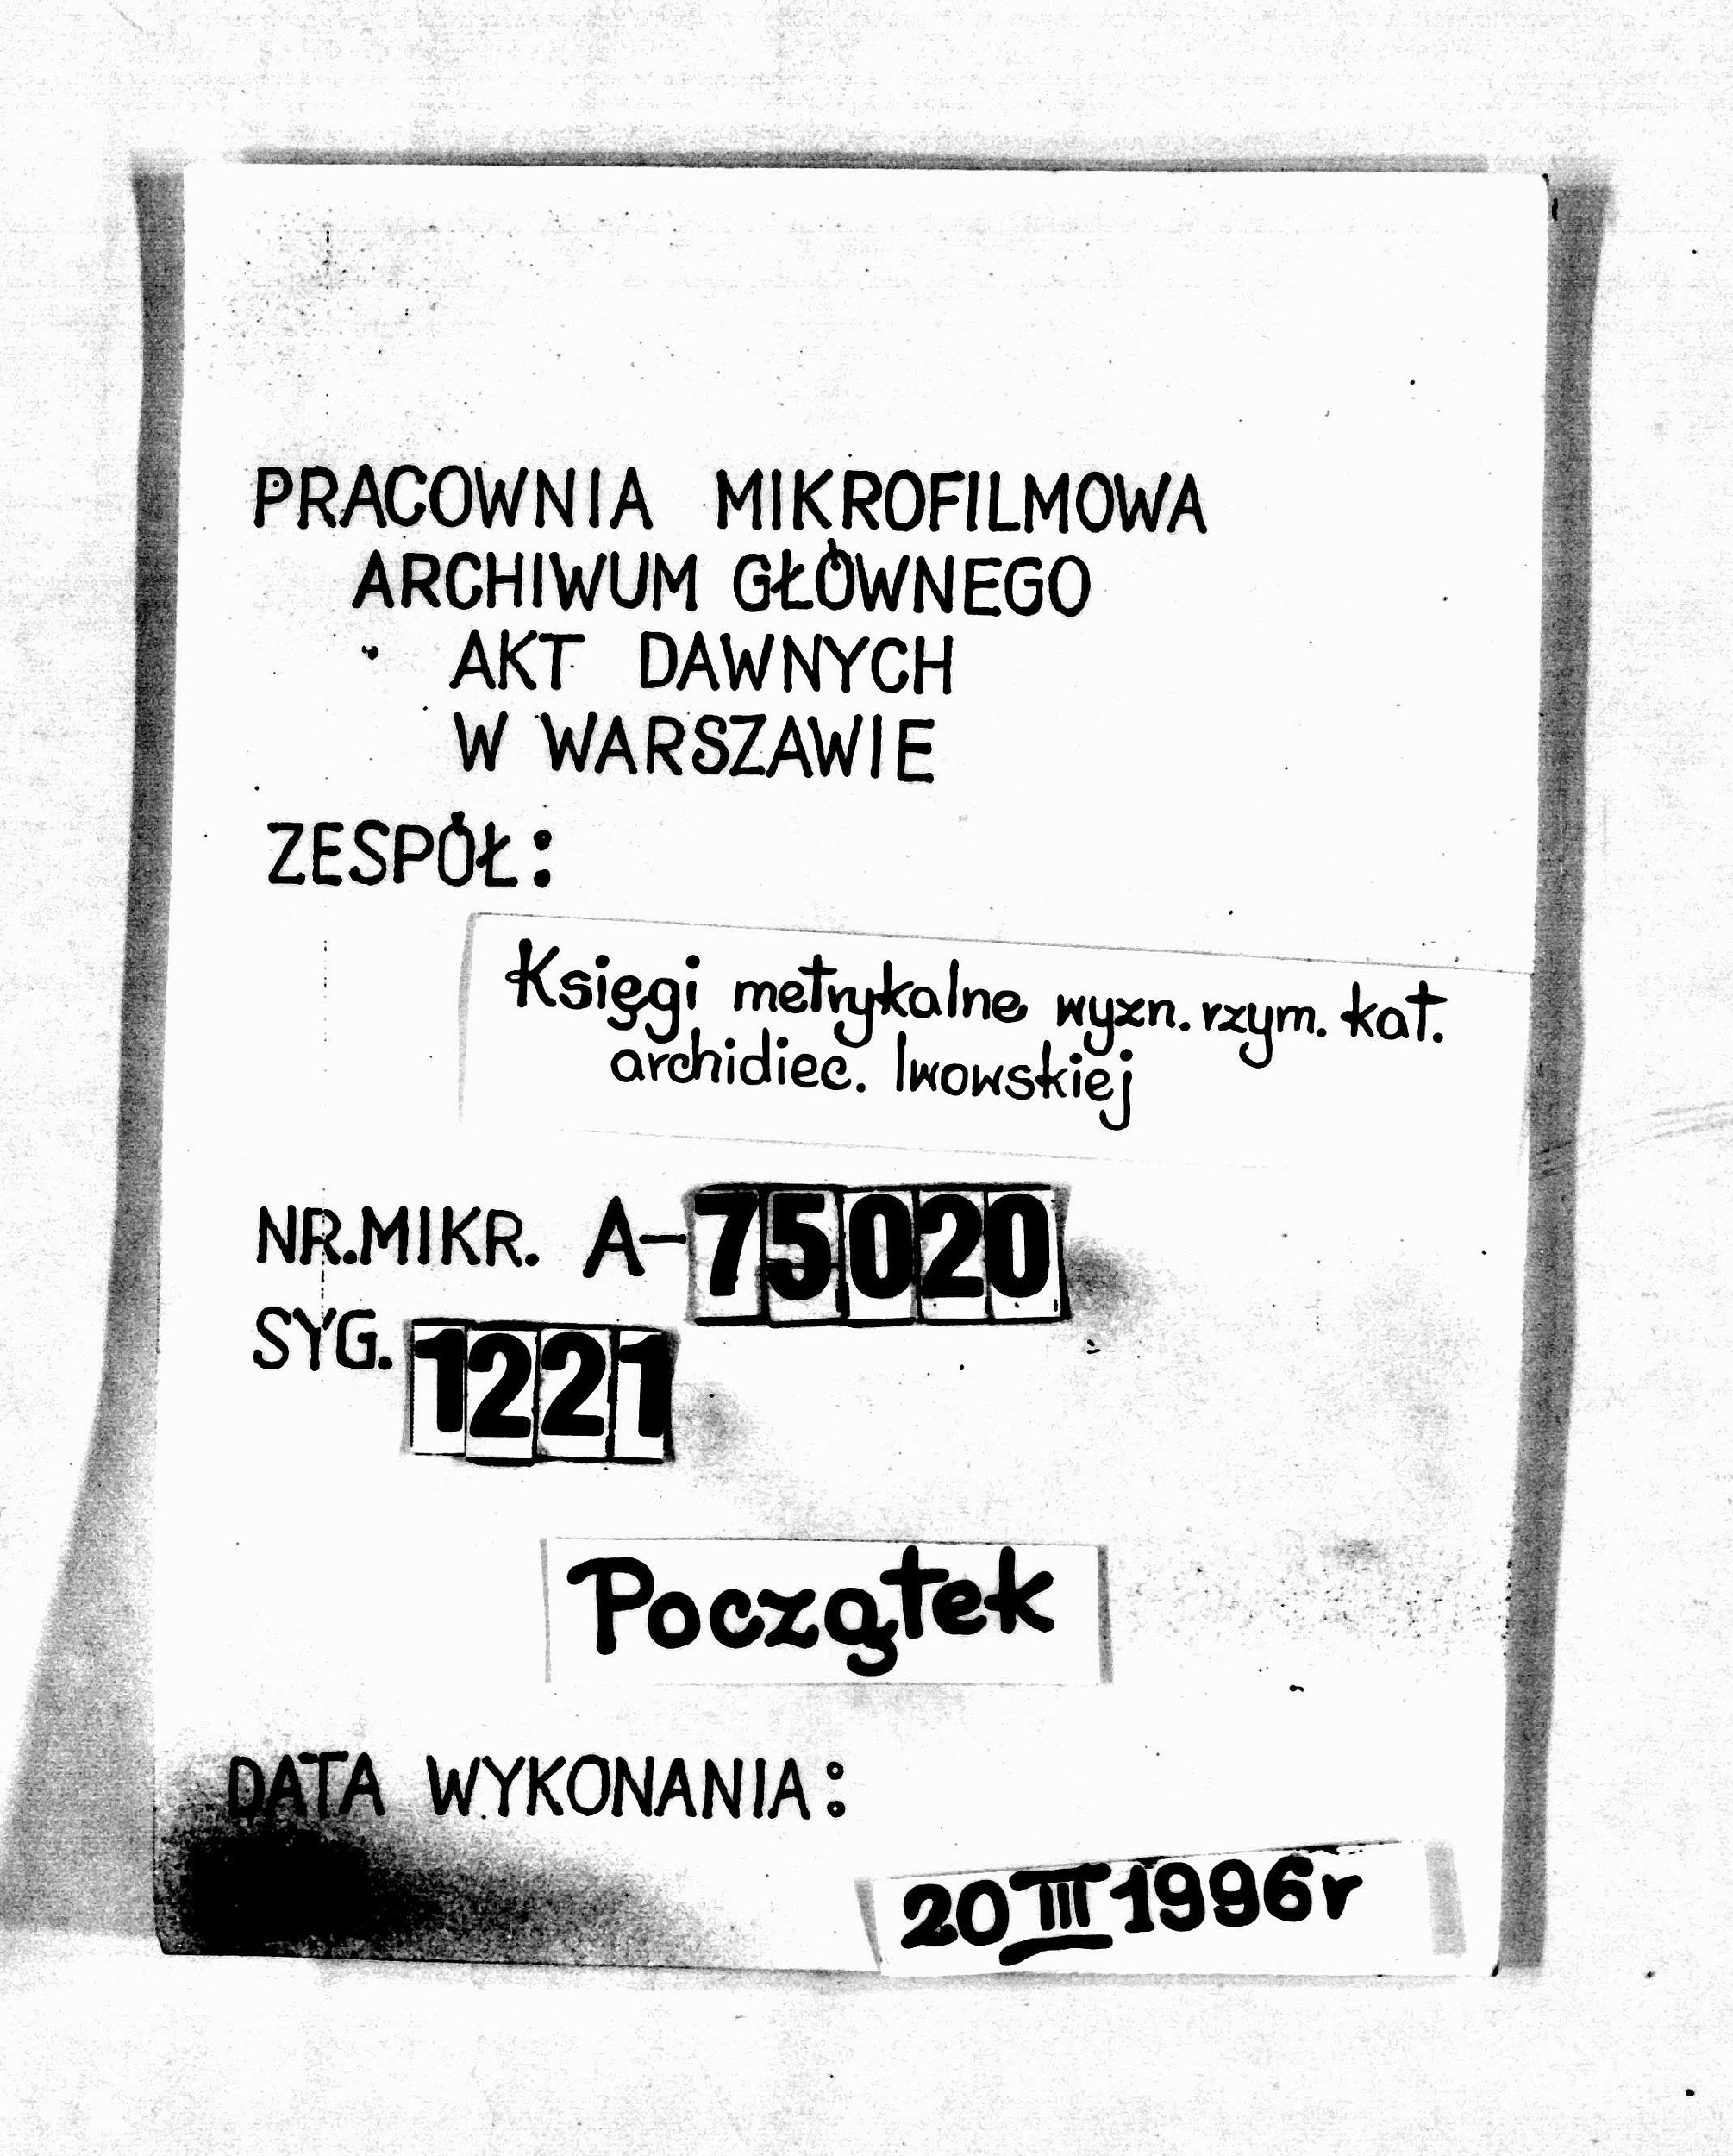 PRACOWNIA MIKROFILMOWA
ARCHIWUM GŁÓWNEGO
AKT DAWNYCH
W WARSZAWIE
ZESPÓŁ:
Księgi metrykalne wyzn. rzym. kat.
archidiec. lwowskiej
NR.MIKR. A-75020
SYG. 1221
Początek
DATA WYKONANIA:
20 III 1996r